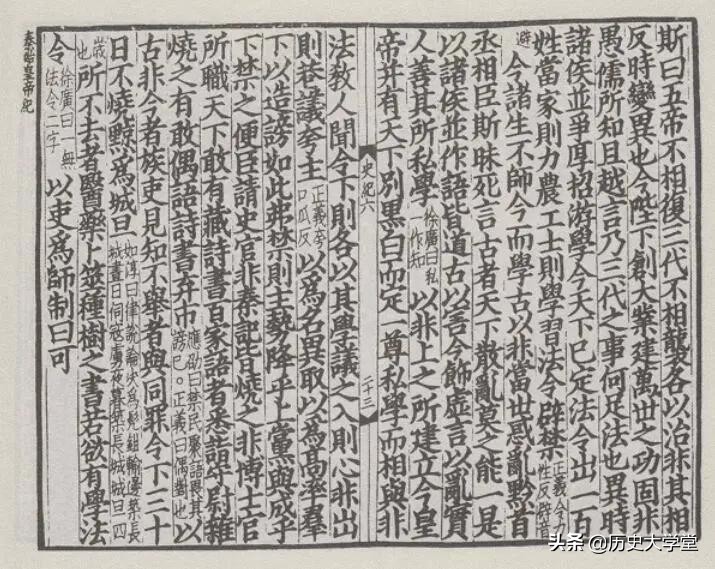 斯曰五帝不相復三代不相襲各以治非其相
反時變異也今陛下創大業建萬世之功固非
愚儒所知且越言乃三代之事何足法也異時
諸侯並爭厚招游學今天下已定法令出一百
姓當家則力農工士則學習法令辟禁正義令力性反辟音
避今諸生不師今而學古以非當世惑亂黔首
丞相臣斯昧死言古者天下散亂莫之能一是
以諸侯並作語皆道古以害今飾虛言以亂實
人善其所私學徐廣曰私一作知以非上之所建立今皇
帝并有天下別黑白而定一尊私學而相與非
史紀六 二十三
法教人聞令下則各以其學議之入則心非出
則巷議夸主正義夸口瓜反以為名異取以為高率羣
下以造謗如此弗禁則主勢降乎上黨與成乎
下禁之便臣請史官非秦記皆燒之非博士官
所職天下敢有藏詩書百家語者悉詣守尉雜
燒之有敢偶語詩書弃市應劭曰禁民聚語畏其謗已。正義曰偶對也以
古非今者族吏見知不舉者與同罪令下三十
日不燒黥為城旦如淳曰律說論決為髡鉗輸邊築長城晝日伺寇虜夜暮築長城城旦四
歲也所不去者醫藥卜筮種樹之書若欲有學法
令徐廣曰一無法令二字以吏為師制曰可
秦始皇帝紀
头条 @历史大学堂